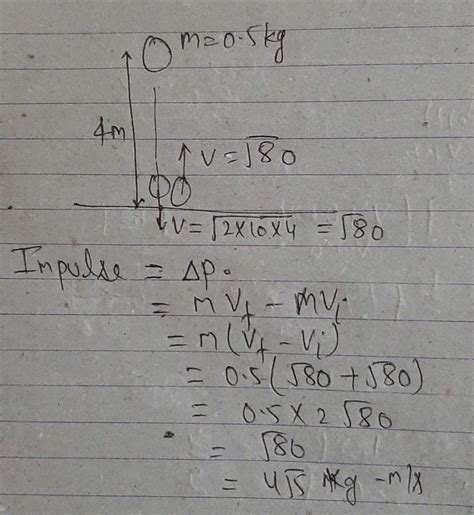 m=0.5kg
4m
V=√80
V=√2×10×4 = √80
Impulse = Δp.
= mVf - mVi
= m(Vf - Vi)
= 0.5(√80+√80)
= 0.5×2√80
= √80
= 4√5 kg-m/s